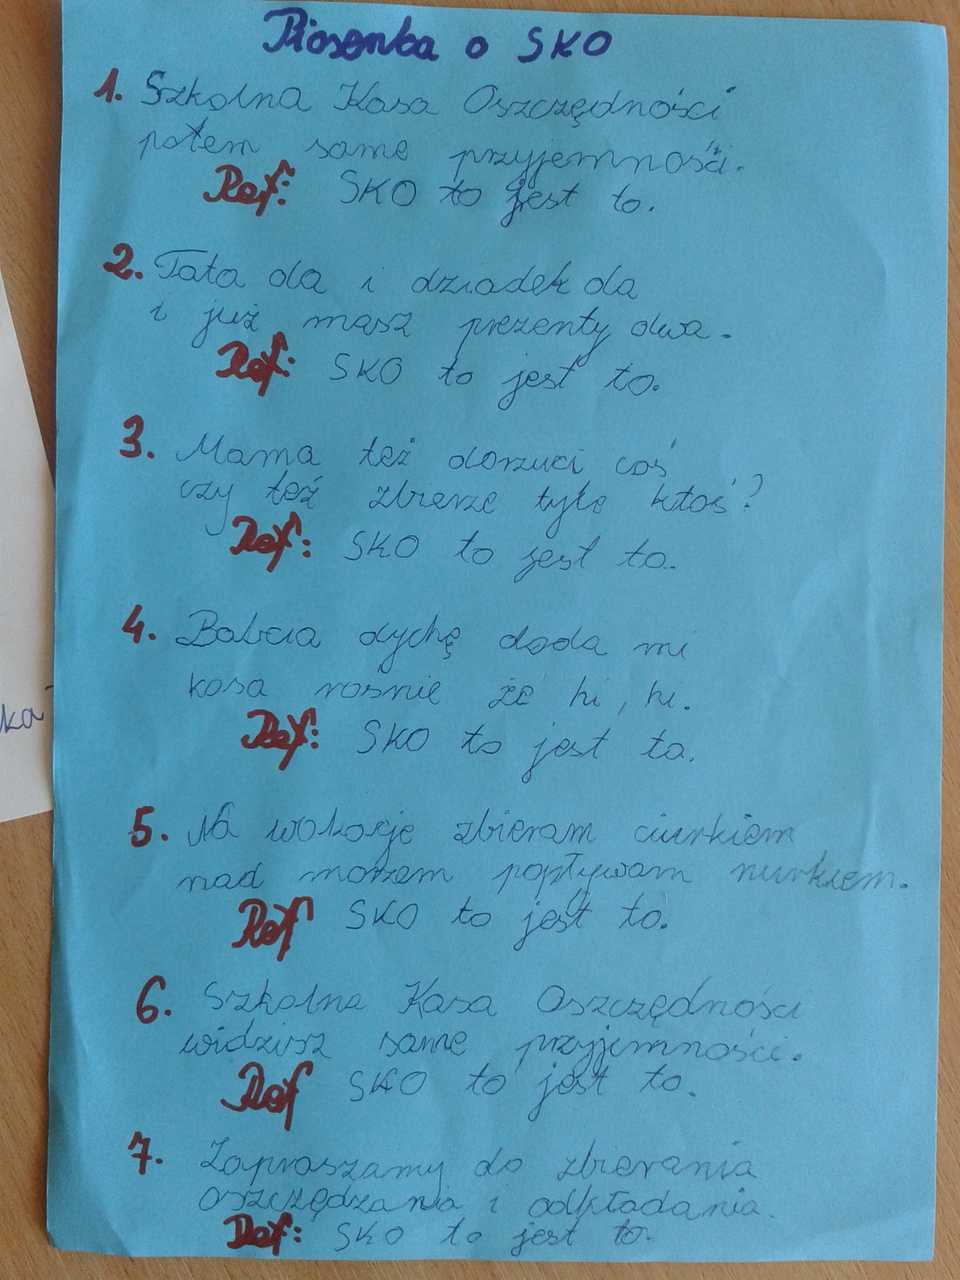 Piosenka o SKO
1. Szkolna Kasa Oszczędności
potem same przyjemności.
Ref: SKO to jest to.
2. Tata da i dziadek da
i już masz prezenty dwa.
Ref: SKO to jest to.
3. Mama też dorzuci coś
czy też zbierze tyle ktoś?
Ref: SKO to jest to.
4. Babcia dychę doda mi
kasa rośnie że hi, hi.
Ref: SKO to jest to.
5. Na wakacje zbieram ciurkiem
nad morzem popływam nurkiem.
Ref SKO to jest to.
6. Szkolna Kasa Oszczędności
widzisz same przyjemności.
Ref SKO to jest to.
7. Zapraszamy do zbierania
oszczędzania i odkładania.
Ref: SKO to jest to.
ka